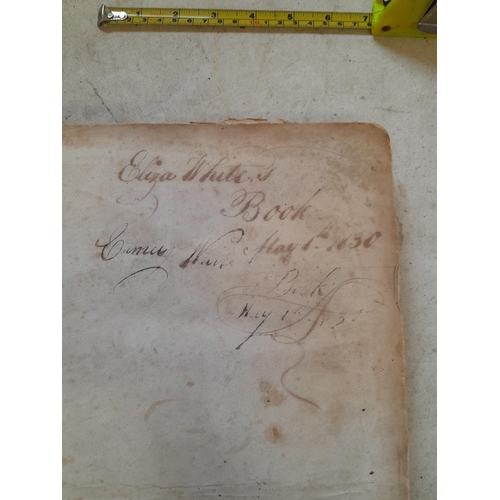 1 2 3 4 5 6 7
Eliza White's
Book
May 1st 1830
Book
May 1st